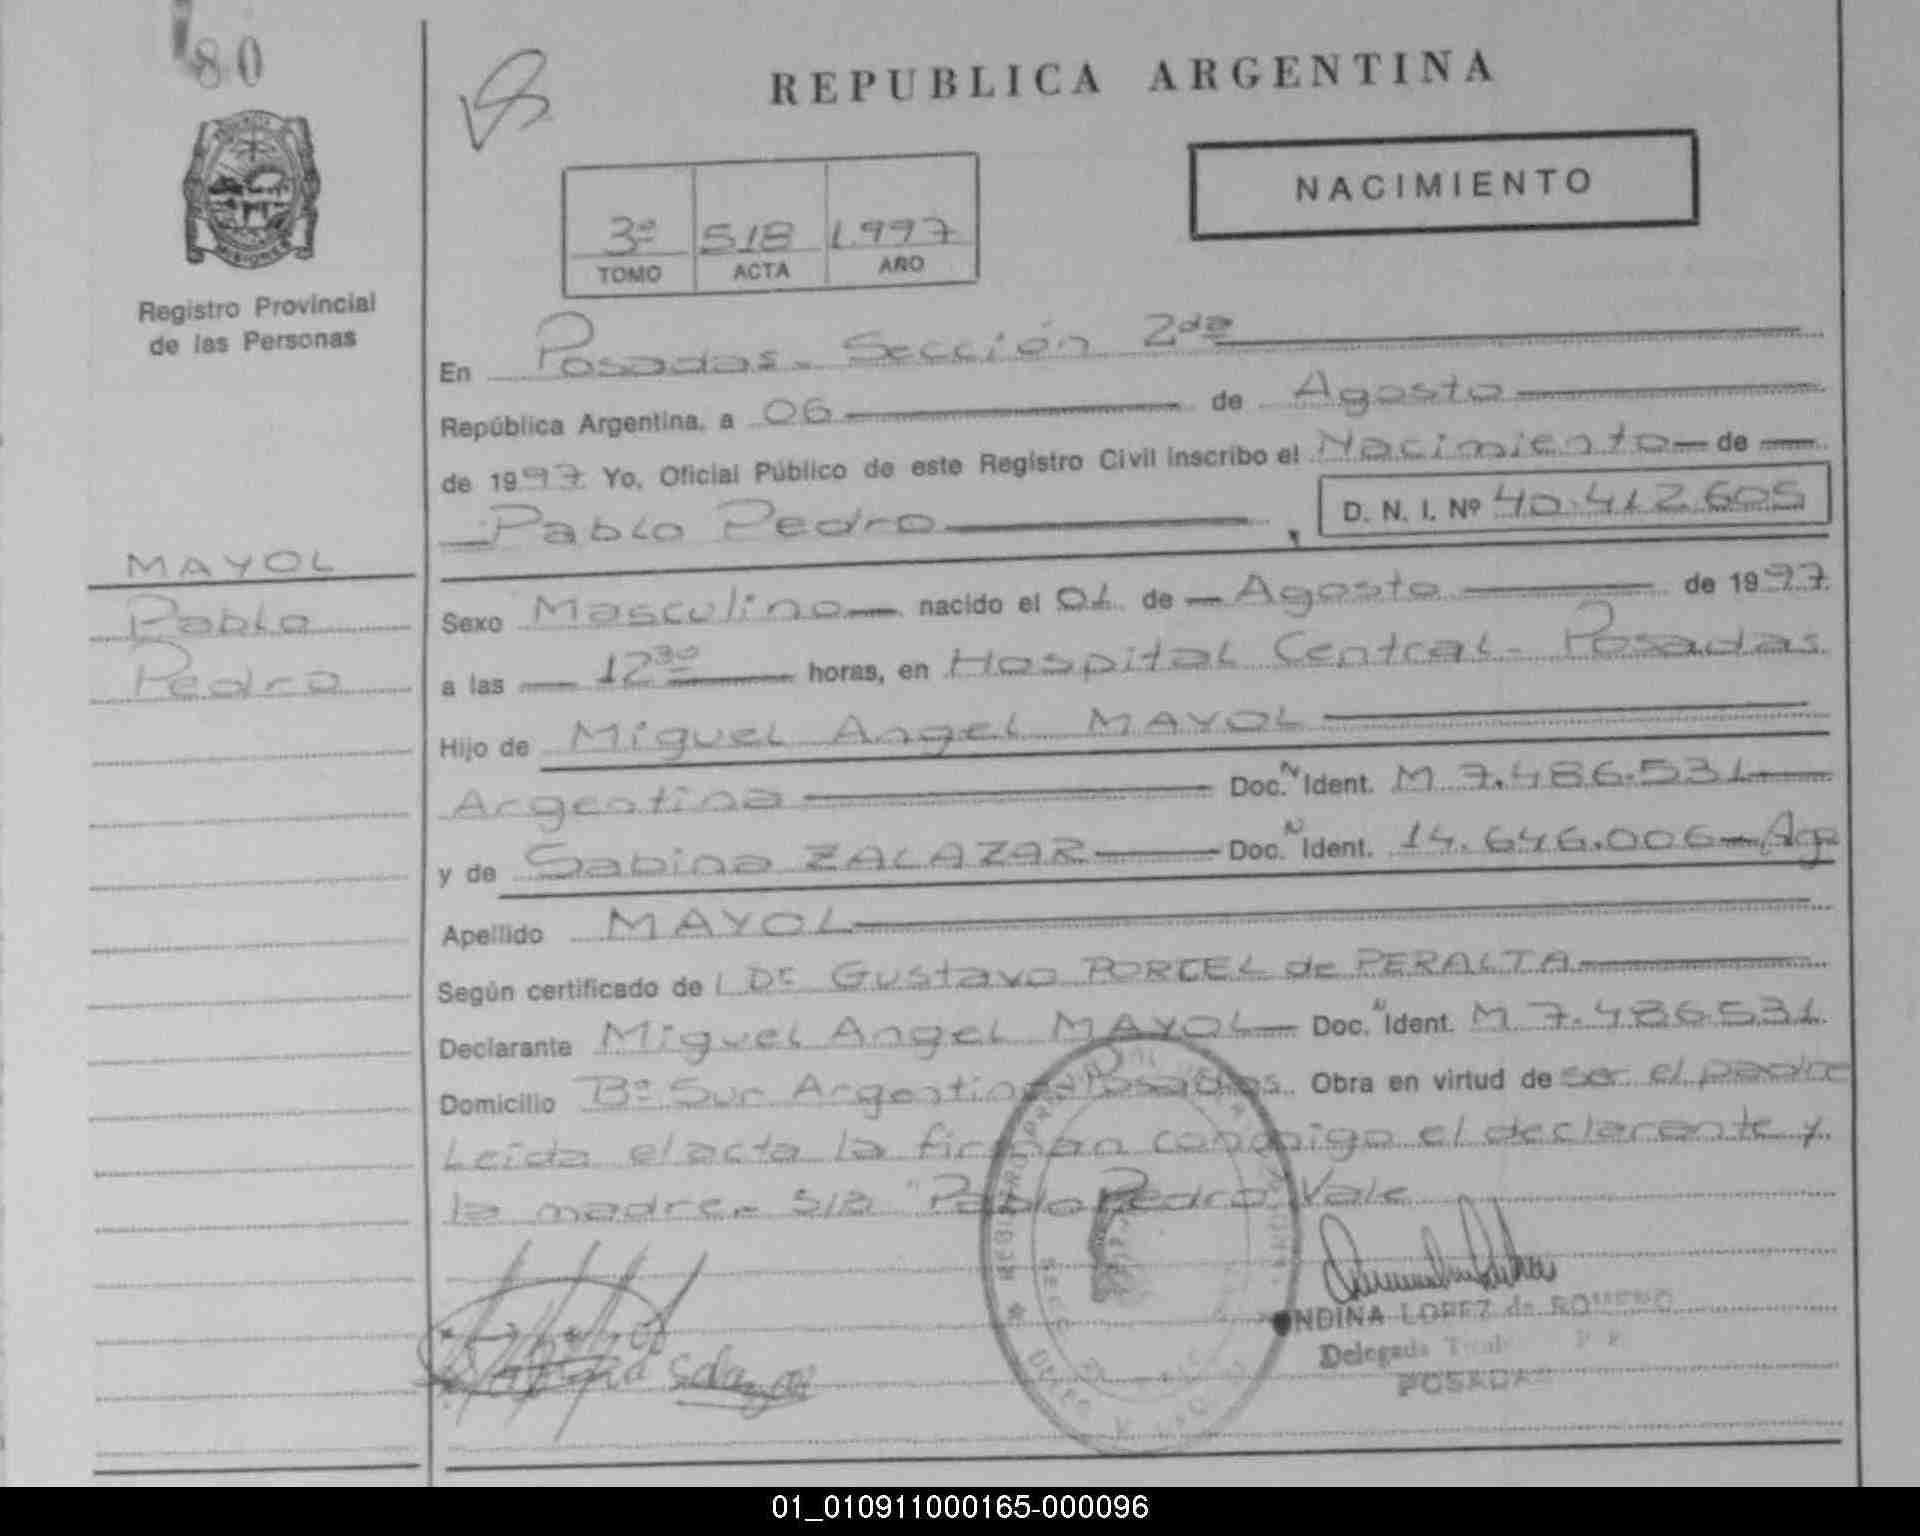 80
REPUBLICA ARGENTINA
NACIMIENTO
3º 518 1.997
TOMO ACTA AÑO
Registro Provincial
de las Personas
En Posadas - Sección 2da
República Argentina, a 06 de Agosto
de 1997 Yo, Oficial Público de este Registro Civil inscribo el Nacimiento de
Pablo Pedro , D. N. I. Nº 40.412.605
MAYOL
Pablo
Pedro
Sexo Masculino nacido el 01 de Agosto de 1997
a las 12 30 horas, en Hospital Central - Posadas
Hijo de Miguel Angel MAYOL
Argentina Doc. N Ident. M 7.486.531
y de Sabina ZALAZAR Doc. N Ident. 14.646.006 - Arg
Apellido MAYOL
Según certificado de l Dr Gustavo PORCEL de PERALTA
Declarante Miguel Angel MAYOL Doc. N Ident. M 7.486531
Domicilio Bº Sur Argentino Posadas Obra en virtud de ser el padre
Leída el acta la firman conmigo el declarante y
la madre.- S/B "Pablo Pedro" Vale
NDINA LOPEZ de ROMERO
Delegada
POSADAS
01_010911000165-000096